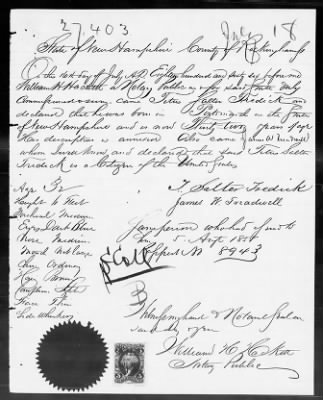 27403
July 18
State of New Hampshire County of Rockingham ss
On the day of July A.D. Eighteen hundred and sixty six before me
William H. Hackett a Notary Public in and for said State duly
Commissioned came Titus Salter Tredick and
declared that he was born in Portsmouth in the State
of New Hampshire and is now Thirty two years of age
His description is annexed Also came James W. Treadwell
whom I well know and declared that said Titus Salter
Tredick is a Citizen of the United States
Age 32
T. Salter Tredick
Height 5 feet
James W. Treadwell
Forehead Medium
Eyes Dark Blue
Nose Medium
5 Sept 18
Mouth Not Large
No 8943
Chin Ordinary
Hair Brown
Complexion
Face Thin
Side Whiskers
Witness my hand & Notarial Seal on
said day of
William H. Hackett
Notary Public